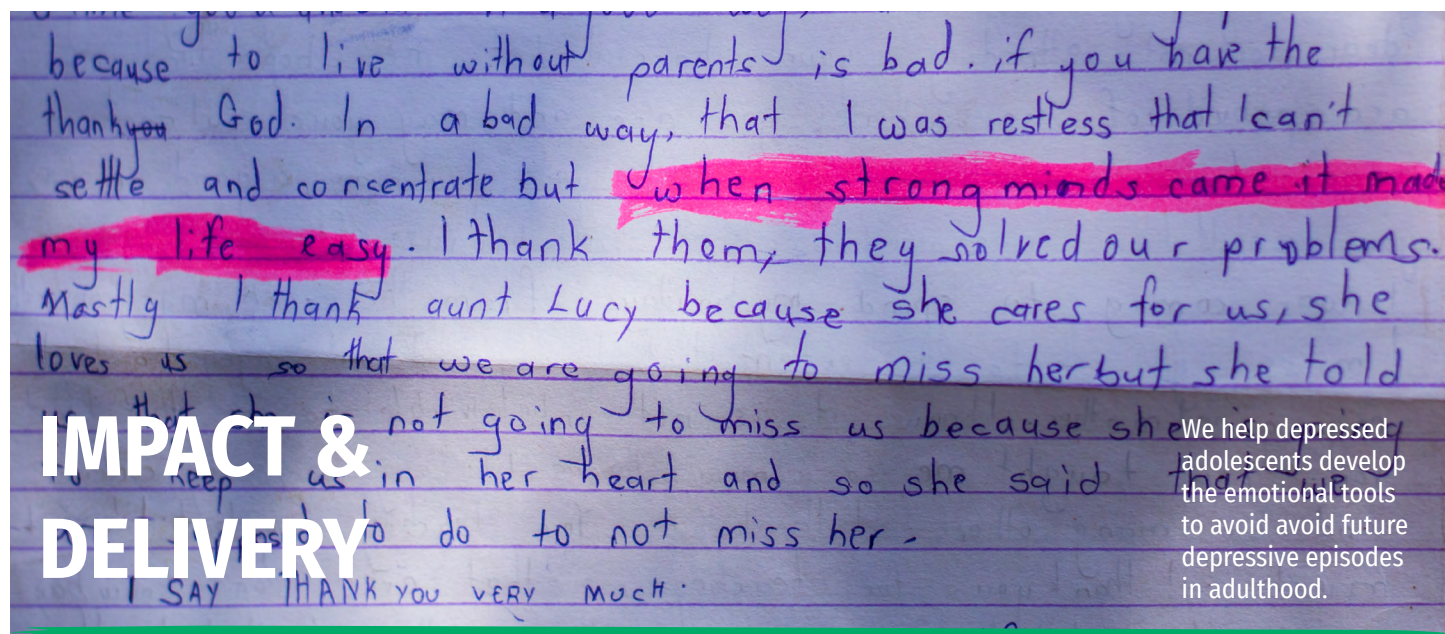 because to live without parents is bad. if you have the
thankyou God. In a bad way, that I was restless that I can't
settle and consentrate but when strong minds came it made
my life easy. I thank them, they solved our problems.
Mostly I thank aunt Lucy because she cares for us, she
loves us so that we are going to miss her but she told
us that she is not going to miss us because she is
keep us in her heart and so she said that we
to do to not miss her.
I SAY THANK YOU VERY MUCH.
IMPACT &
DELIVERY
We help depressed
adolescents develop
the emotional tools
to avoid avoid future
depressive episodes
in adulthood.